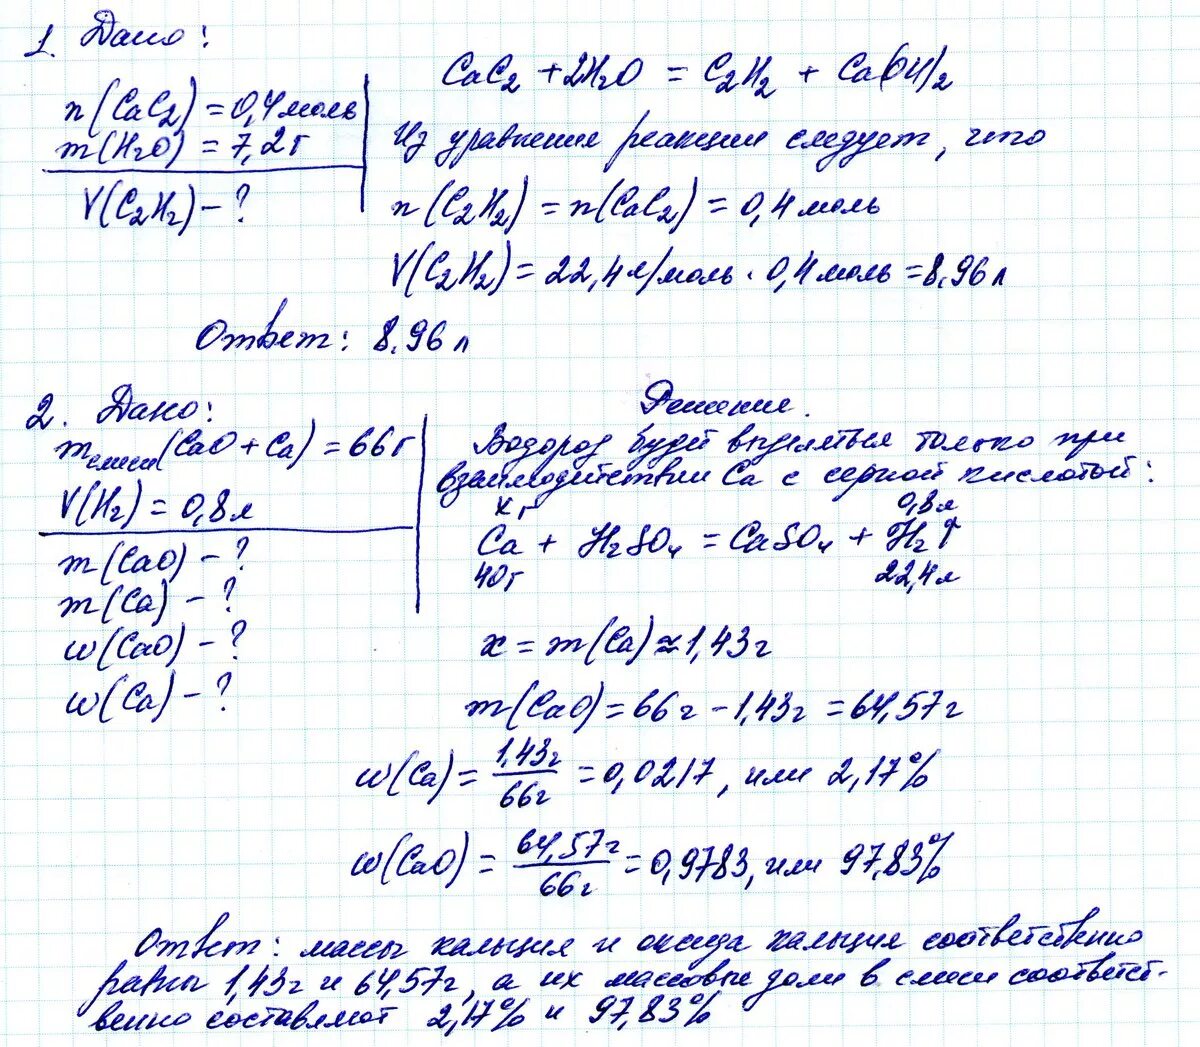 1. Дано:
n(CaC₂) = 0,4 моль
m(H₂O) = 7,2 г
V(C₂H₂) – ?
CaC₂ + 2H₂O = C₂H₂ + Ca(OH)₂
Из уравнения реакции следует, что
n(C₂H₂) = n(CaC₂) = 0,4 моль
V(C₂H₂) = 22,4 л/моль · 0,4 моль = 8,96 л
Ответ: 8,96 л
2. Дано:
mсмеси(CaO + Ca) = 66 г
V(H₂) = 0,8 л
m(CaO) – ?
m(Ca) – ?
w(CaO) – ?
w(Ca) – ?
Решение.
Водород будет выделяться только при
взаимодействии Ca с серной кислотой:
x г 0,8 л
Ca + H₂SO₄ = CaSO₄ + H₂↑
40 г 22,4 л
x = m(Ca) ≈ 1,43 г
m(CaO) = 66 г – 1,43 г = 64,57 г
w(Ca) = 1,43 г / 66 г = 0,0217, или 2,17%
w(CaO) = 64,57 г / 66 г = 0,9783, или 97,83%
Ответ: массы кальция и оксида кальция соответственно
равны 1,43 г и 64,57 г, а их массовые доли в смеси соответст-
венно составляют 2,17% и 97,83%